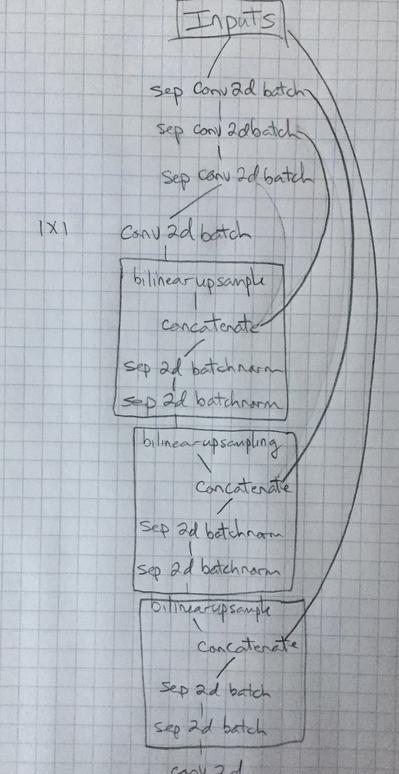 Inputs
sep conv 2d batch
sep conv 2d batch
sep conv 2d batch
1X1 Conv 2d batch
bilinear upsample
concatenate
sep 2d batchnorm
sep 2d batchnorm
bilinear upsampling
concatenate
sep 2d batchnorm
sep 2d batchnorm
bilinear upsample
concatenate
sep 2d batch
sep 2d batch
conv 2d